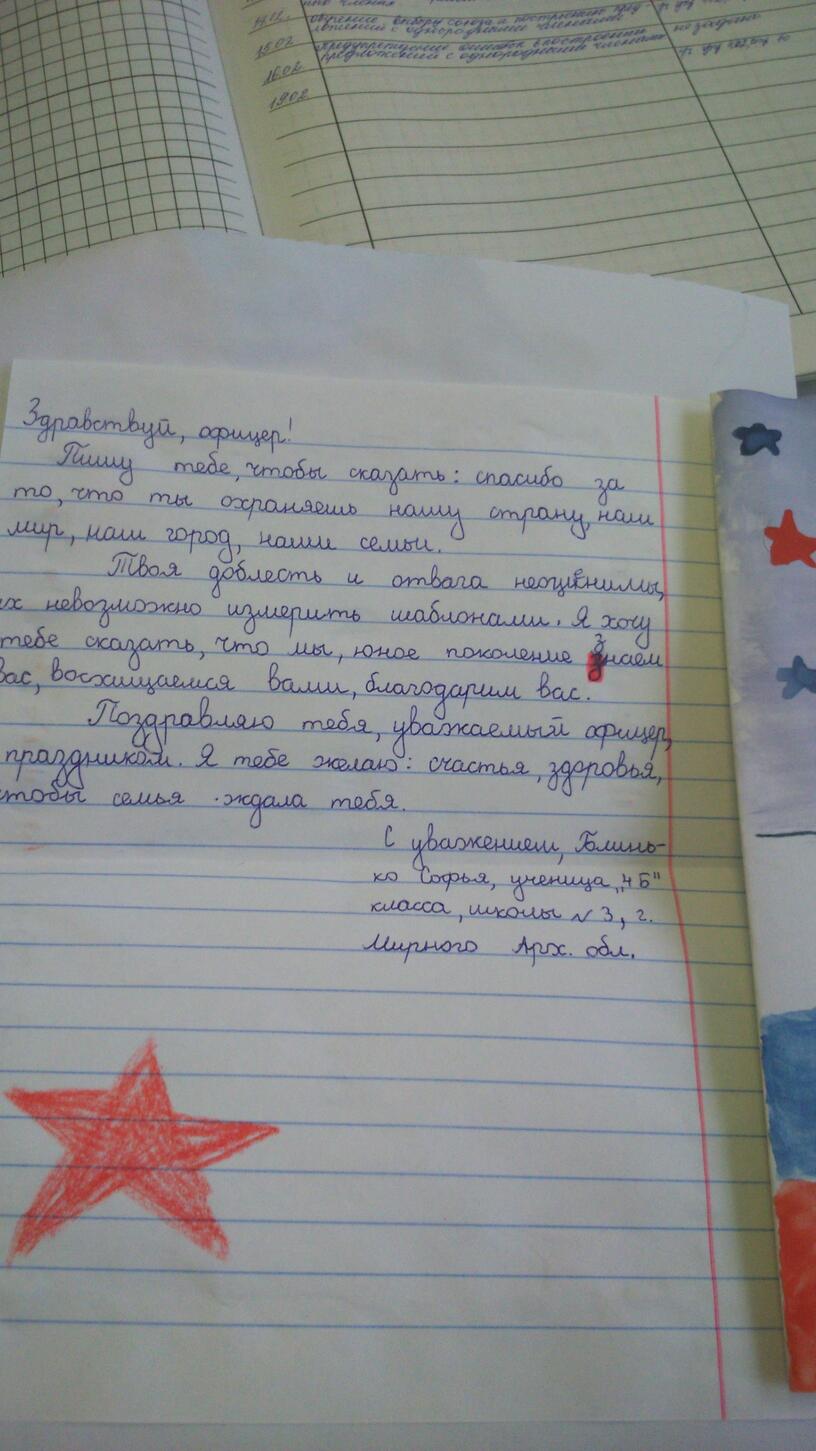 14.02.
15.02
Предупреждение ошибок в построении
предложений с однородными членами
не задано
16.02
19.02
Здравствуй, офицер!
Пишу тебе, чтобы сказать: спасибо за
то, что ты охраняешь нашу страну, наш
мир, наш город, наши семьи.
Твоя доблесть и отвага неоценимы,
их невозможно измерить шаблонами. Я хочу
тебе сказать, что мы, юное поколение знаем
вас, восхищаемся вами, благодарим вас.
Поздравляю тебя, уважаемый офицер,
праздником. Я тебе желаю: счастья, здоровья,
чтобы семья ждала тебя.
С уважением, Блинь-
ко Софья, ученица „4 Б"
класса, школы №3, г.
Мирного Арх. обл.